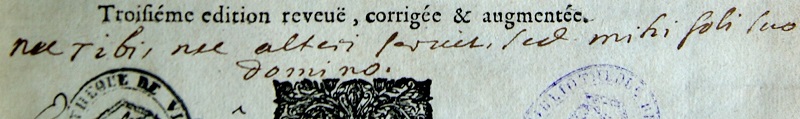 Troisiéme edition reveuë, corrigée & augmentée.
nec tibi, nec alteri servit, sed mihi soli suo
domino.
THEQUE DE VI
BIBLIOTHEQUE